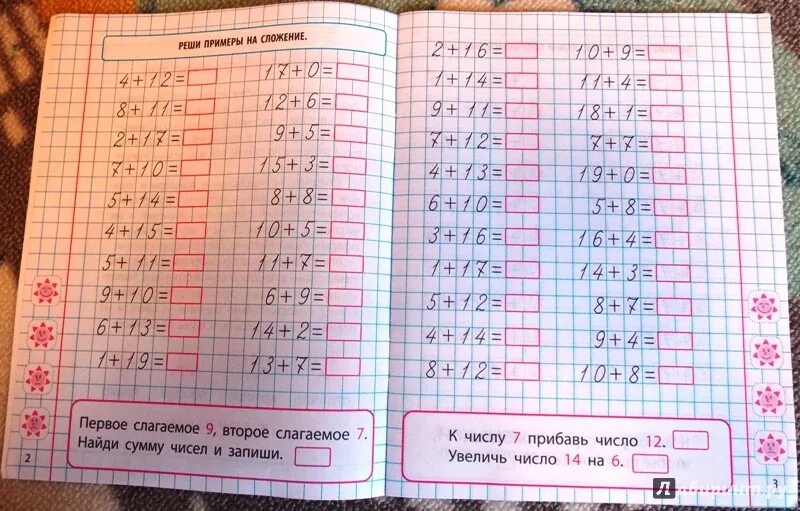 РЕШИ ПРИМЕРЫ НА СЛОЖЕНИЕ.
4+12=
8+11=
2+17=
7+10=
5+14=
4+15=
5+11=
9+10=
6+13=
1+19=
17+0=
12+6=
9+5=
15+3=
8+8=
10+5=
11+7=
6+9=
14+2=
13+7=
Первое слагаемое 9, второе слагаемое 7.
Найди сумму чисел и запиши.
2
2+16=
1+14=
9+11=
7+12=
4+13=
6+10=
3+16=
1+17=
5+12=
4+14=
8+12=
10+9=
11+4=
18+1=
7+7=
19+0=
5+8=
16+4=
14+3=
8+7=
9+4=
10+8=
К числу 7 прибавь число 12.
Увеличь число 14 на 6.
3
Лабиринт.ру